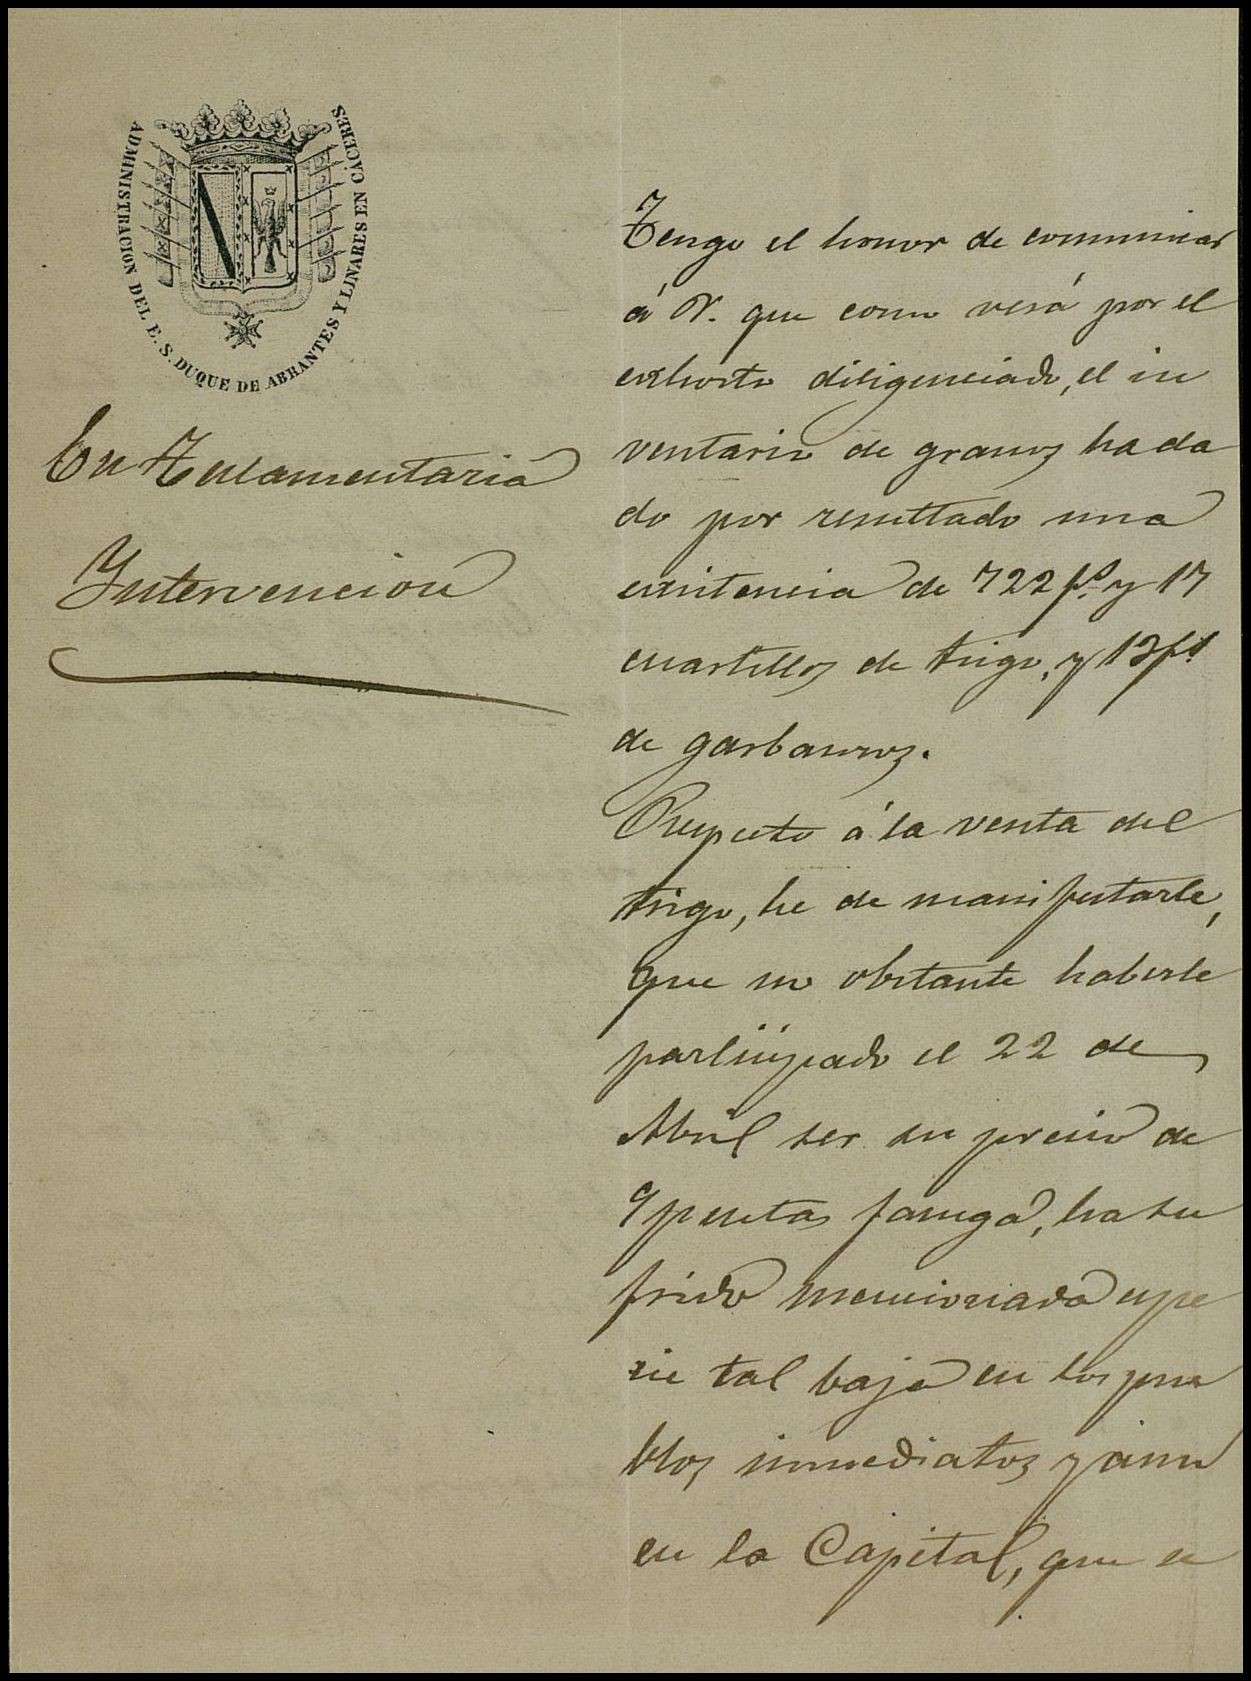 ADMINISTRACION DEL E. S. DUQUE DE ABRANTES Y LINARES EN CÁCERES
En Testamentaria
Intervencion
Tengo el honor de comunicar
á V. que como verá por el
exhorto diligenciado, el in
ventario de granos ha da
do por resultado una
existencia de 722 fs. y 17
cuartillos de trigo, y 13 fs.
de garbanzos.
Respecto á la venta del
trigo, he de manifestarle,
que no obstante haberle
participado el 22 de
Abril ser su precio de
9 pesetas fanega, ha su
frido mencionada espe
cie tal baja en los pue
blos inmediatos y aun
en la Capital, que se